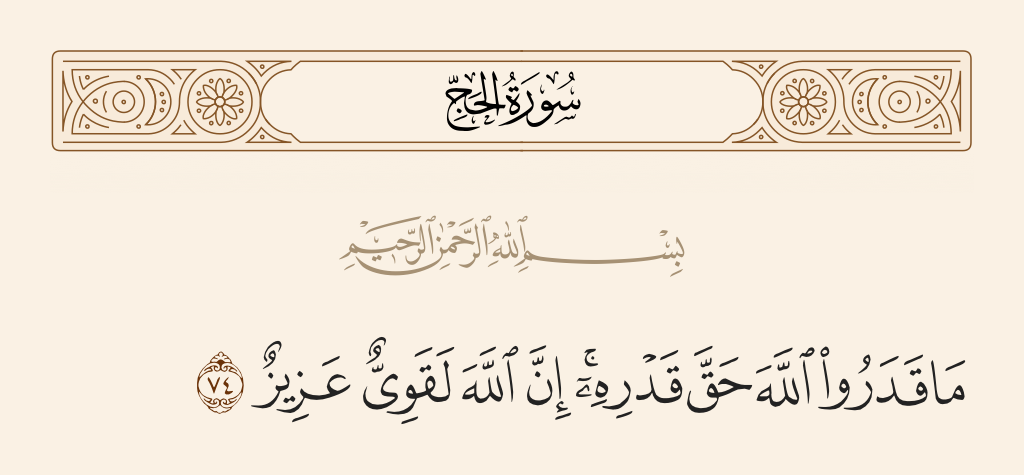 سُورَةُ الحَجِّ
بِسْمِ ٱللَّهِ ٱلرَّحْمَٰنِ ٱلرَّحِيمِ
مَا قَدَرُوا۟ ٱللَّهَ حَقَّ قَدْرِهِۦٓ ۚ إِنَّ ٱللَّهَ لَقَوِىٌّ عَزِيزٌ ٧٤